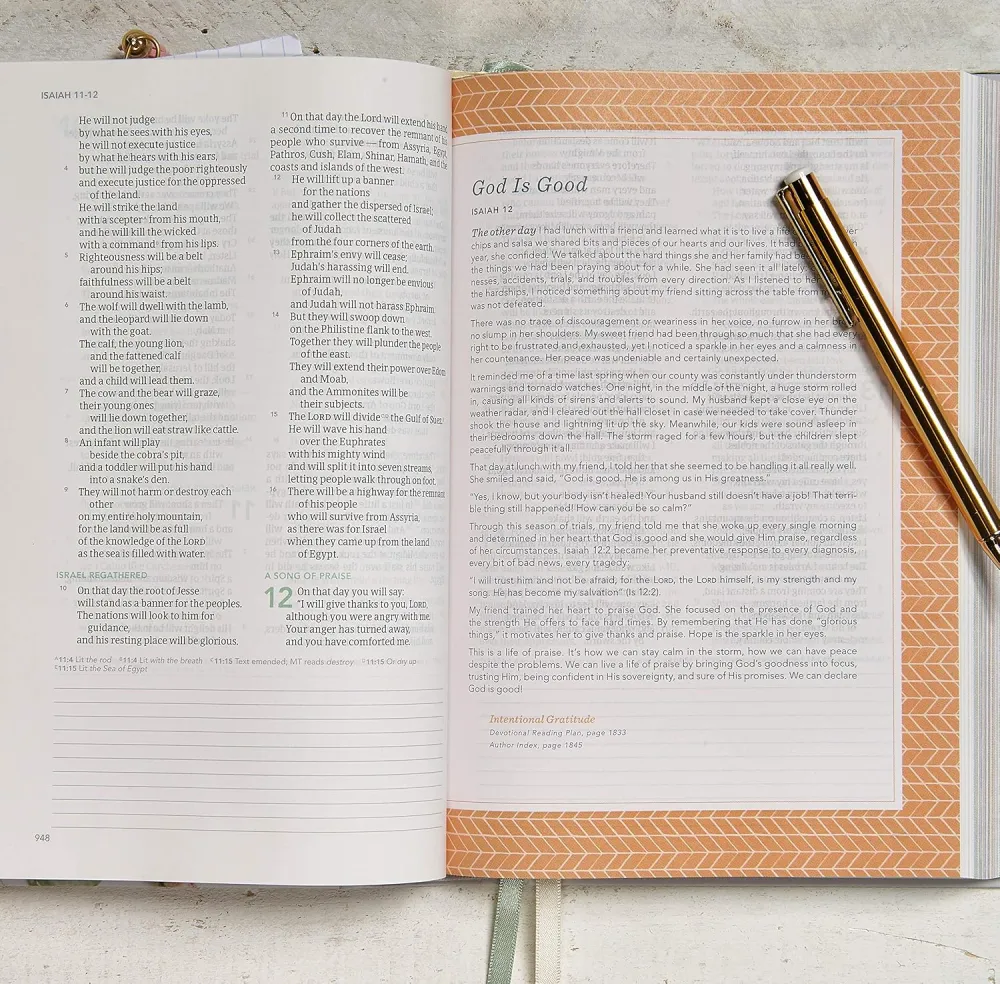 ISAIAH 11-12
He will not judge
by what he sees with his eyes,
he will not execute justice
by what he hears with his ears,
4 but he will judge the poor righteously
and execute justice for the oppressed
of the land.
He will strike the land
with a scepter from his mouth,
and he will kill the wicked
with a command from his lips.
5 Righteousness will be a belt
around his hips;
faithfulness will be a belt
around his waist.
6 The wolf will dwell with the lamb,
and the leopard will lie down
with the goat.
The calf, the young lion,
and the fattened calf
will be together,
and a child will lead them.
7 The cow and the bear will graze,
their young ones
will lie down together,
and the lion will eat straw like cattle.
8 An infant will play
beside the cobra's pit,
and a toddler will put his hand
into a snake's den.
9 They will not harm or destroy each
other
on my entire holy mountain,
for the land will be as full
of the knowledge of the LORD
as the sea is filled with water.
ISRAEL REGATHERED
10 On that day the root of Jesse
will stand as a banner for the peoples.
The nations will look to him for
guidance,
and his resting place will be glorious.
11 On that day the Lord will extend his hand
a second time to recover the remnant of his
people who survive — from Assyria, Egypt,
Pathros, Cush, Elam, Shinar, Hamath, and the
coasts and islands of the west.
12 He will lift up a banner
for the nations
and gather the dispersed of Israel;
he will collect the scattered
of Judah
from the four corners of the earth.
13 Ephraim's envy will cease;
Judah's harassing will end.
Ephraim will no longer be envious
of Judah,
and Judah will not harass Ephraim.
14 But they will swoop down
on the Philistine flank to the west.
Together they will plunder the people
of the east.
They will extend their power over Edom
and Moab,
and the Ammonites will be
their subjects.
15 The LORD will divide the Gulf of Suez.
He will wave his hand
over the Euphrates
with his mighty wind
and will split it into seven streams,
letting people walk through on foot.
16 There will be a highway for the remnant
of his people
who will survive from Assyria,
as there was for Israel
when they came up from the land
of Egypt.
A SONG OF PRAISE
12 On that day you will say:
"I will give thanks to you, LORD,
although you were angry with me.
Your anger has turned away,
and you have comforted me.
11:4 Lit the rod 11:4 Lit with the breath 11:15 Text emended; MT reads destroy 11:15 Or dry up
11:15 Lit the Sea of Egypt
948
God Is Good
ISAIAH 12
The other day I had lunch with a friend and learned what it is to live a life
chips and salsa we shared bits and pieces of our hearts and our lives. It had
year, she confided. We talked about the hard things she and her family had
the things we had been praying about for a while. She had seen it all lately
nesses, accidents, trials, and troubles from every direction. As I listened to
the hardships, I noticed something about my friend sitting across the table from
was not defeated.
There was no trace of discouragement or weariness in her voice, no furrow in her
no slump in her shoulders. My sweet friend had been through so much that she had every
right to be frustrated and exhausted, yet I noticed a sparkle in her eyes and a calmness in
her countenance. Her peace was undeniable and certainly unexpected.
It reminded me of a time last spring when our county was constantly under thunderstorm
warnings and tornado watches. One night, in the middle of the night, a huge storm rolled
in, causing all kinds of sirens and alerts to sound. My husband kept a close eye on the
weather radar, and I cleared out the hall closet in case we needed to take cover. Thunder
shook the house and lightning lit up the sky. Meanwhile, our kids were sound asleep in
their bedrooms down the hall. The storm raged for a few hours, but the children slept
peacefully through it all.
That day at lunch with my friend, I told her that she seemed to be handling it all really well.
She smiled and said, "God is good. He is among us in His greatness."
"Yes, I know, but your body isn't healed! Your husband still doesn't have a job! That terri-
ble thing still happened! How can you be so calm?"
Through this season of trials, my friend told me that she woke up every single morning
and determined in her heart that God is good and she would give Him praise, regardless
of her circumstances. Isaiah 12:2 became her preventative response to every diagnosis,
every bit of bad news, every tragedy:
"I will trust him and not be afraid, for the LORD, the LORD himself, is my strength and my
song. He has become my salvation" (Is 12:2).
My friend trained her heart to praise God. She focused on the presence of God and
the strength He offers to face hard times. By remembering that He has done "glorious
things," it motivates her to give thanks and praise. Hope is the sparkle in her eyes.
This is a life of praise. It's how we can stay calm in the storm, how we can have peace
despite the problems. We can live a life of praise by bringing God's goodness into focus,
trusting Him, being confident in His sovereignty, and sure of His promises. We can declare
God is good!
Intentional Gratitude
Devotional Reading Plan, page 1833
Author Index, page 1845